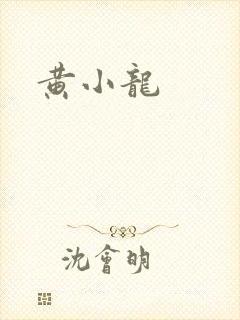 黄小龍
沈會明